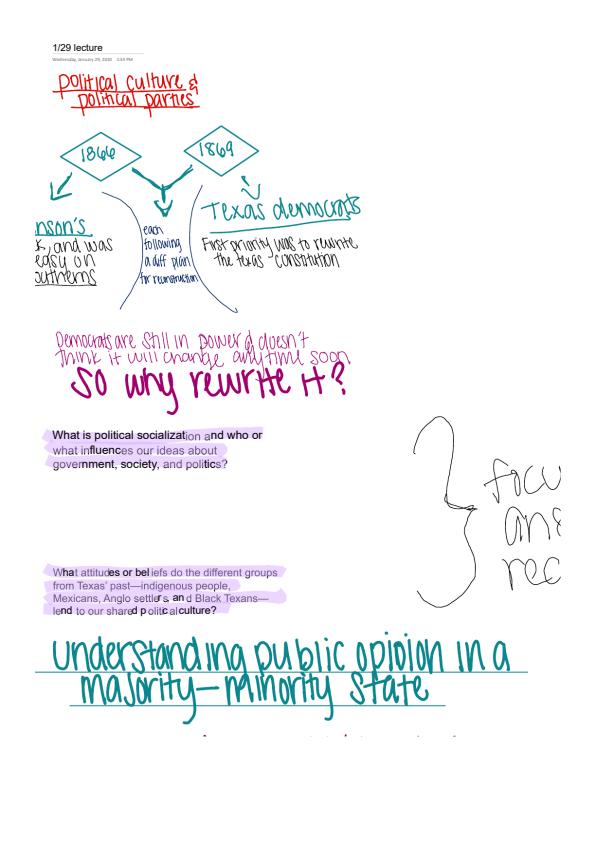 1/29 lecture
Wednesday, January 29, 2020 3:30 PM
political culture &
political parties
1866
1869
nson's
k, and was
easy on
outherns
each
following
a diff plan
for reconstruction
Texas democrats
First priority was to rewrite
the texas constitution
Democrats are still in power & doesn't
think it will change anytime soon
So why rewrite it?
What is political socialization and who or
what influences our ideas about
government, society, and politics?
focu
ans
rec
What attitudes or beliefs do the different groups
from Texas' past—indigenous people,
Mexicans, Anglo settlers, and Black Texans—
lend to our shared political culture?
understanding public opioion in a
majority-minority state